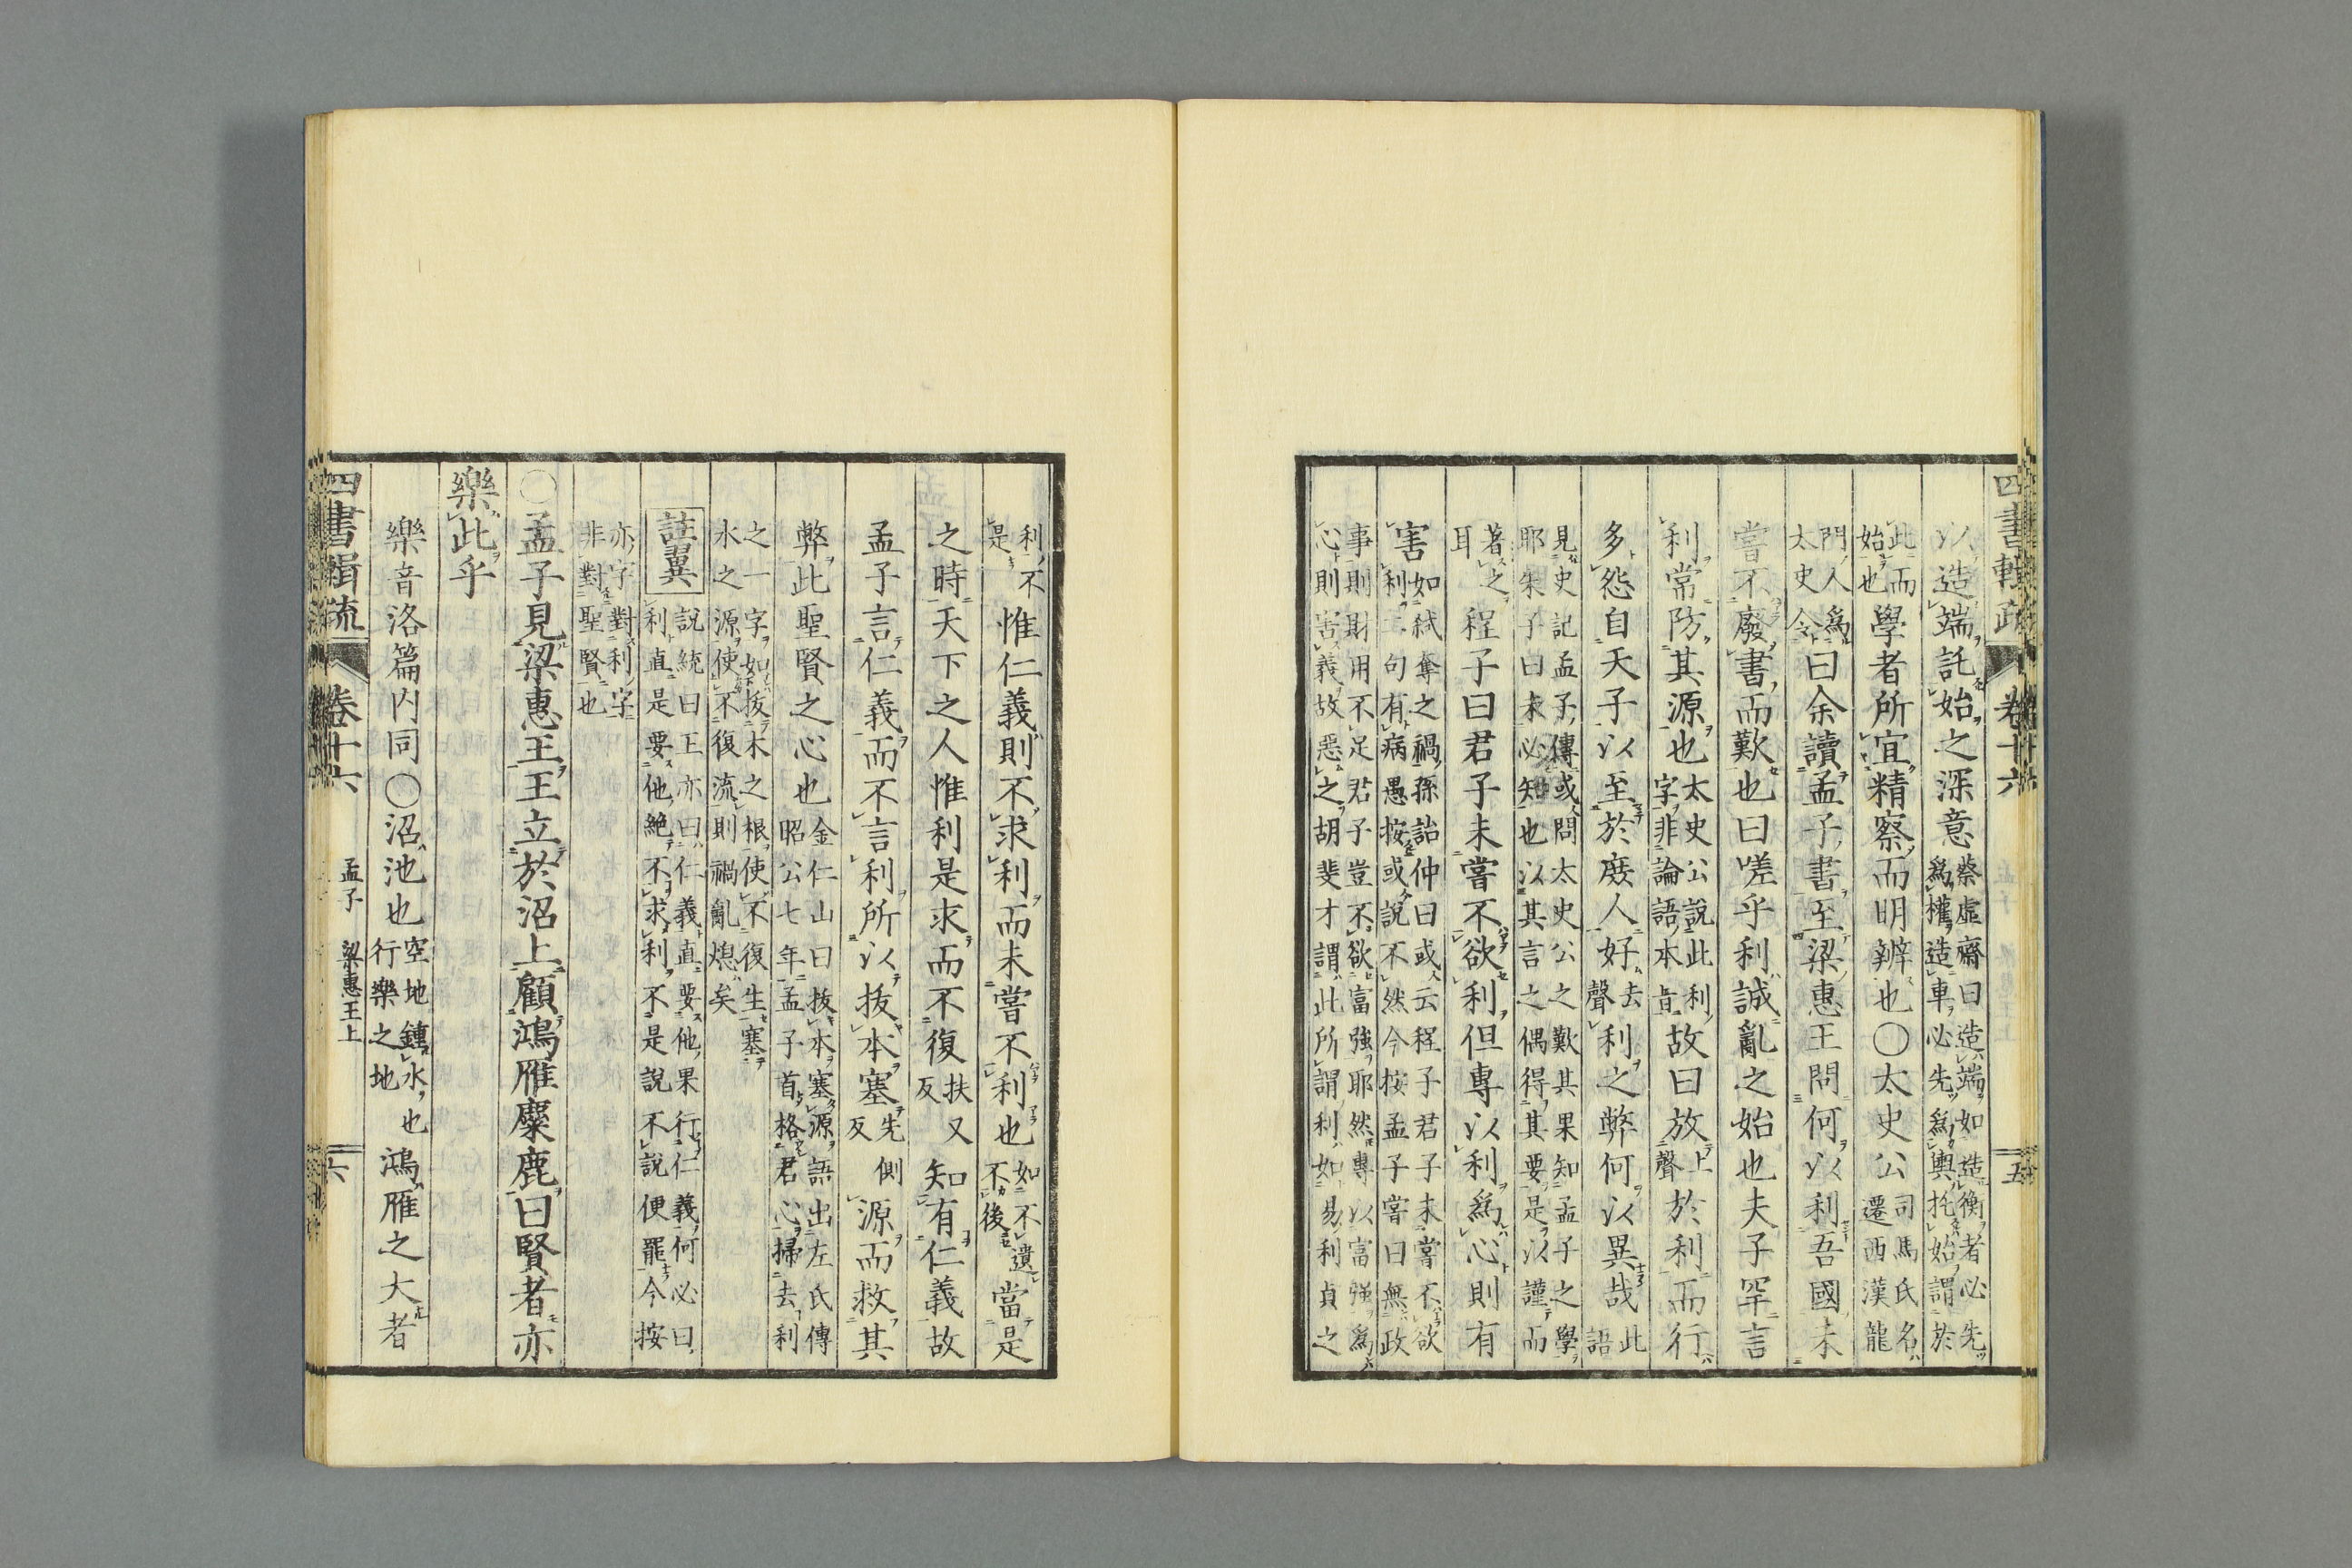 四書輯疏 卷十六 五
以造端託始之深意蔡虛齋曰造端如造衡者必先爲權造車必先爲輿托始謂於
此而始也學者所宜精察而明辨也○太史公司馬氏名遷西漢龍
門人爲太史令曰余讀孟子書至梁惠王問何以利吾國未
嘗不廢書而歎也曰嗟乎利誠亂之始也夫子罕言
利常防其源也太史公說此利字非論語本旨故曰放上聲於利而行
多怨自天子以至於庶人好去聲利之弊何以異哉此語
見史記孟子傳或問太史公之歎其果知孟子之學耶朱子曰未必知也以其言之偶得其要是以謹而
著之耳程子曰君子未嘗不欲利但專以利爲心則有
害如弑奪之禍孫詒仲曰或云程子君子未嘗不欲利二句有病愚按或說不然今按孟子嘗曰無政
事則財用不足君子豈不欲富強耶然專以富強爲心則害義故惡之胡斐才謂此所謂利如易利貞之
利不是惟仁義則不求利而未嘗不利也如不遺不後當是
之時天下之人惟利是求而不復扶又反知有仁義故
孟子言仁義而不言利所以拔本塞先側反源而救其
弊此聖賢之心也金仁山曰拔本塞源語出左氏傳昭公七年孟子首格君心掃去利
之一字如拔木之根使不復生塞水之源使不復流則禍亂熄矣
註翼說統曰王亦曰仁義直要他果行仁義何必曰利直是要他絶不求利不是說不說便罷今按
亦字對利字非對聖賢也
○孟子見梁惠王王立於沼上顧鴻雁麋鹿曰賢者亦
樂此乎
樂音洛篇内同○沼池也空地鍾水也行樂之地鴻雁之大者
四書輯疏 卷十六 孟子 梁惠王上 六